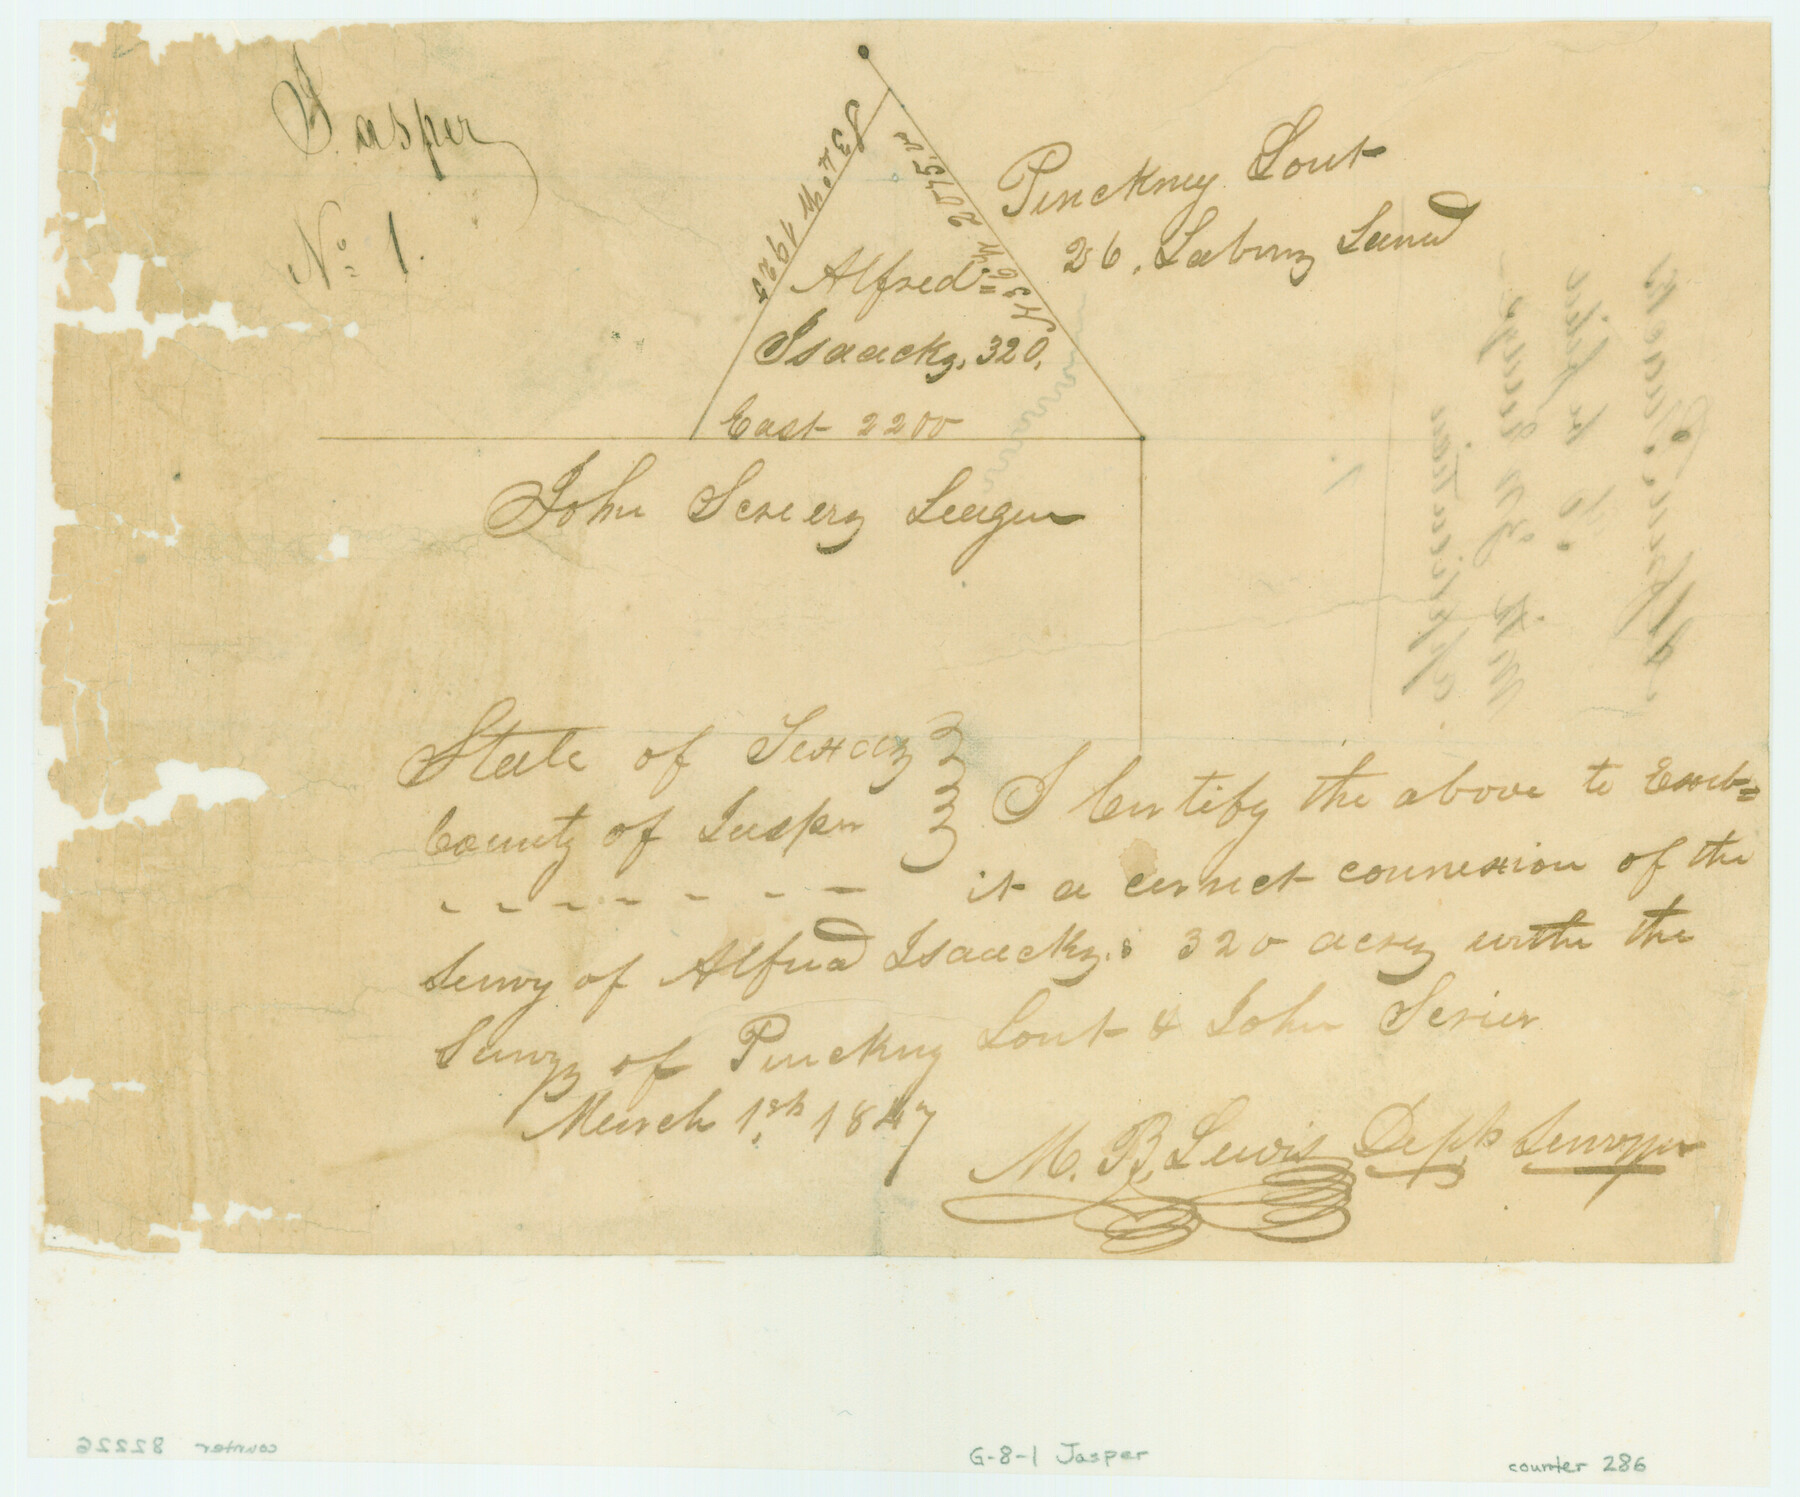 Jasper
No. 1.
S 34° W 1925
N 39° W 2075. vs
Pinckney Lout
26, Labors Land
Alfred
Isaacks, 320,
East 2200
John Seviers League
State of Texas
County of Jasper
I Certify the above to Exib=
it a correct connexion of the
Survy of Alfred Isaacks,s 320 acres with the
Survys of Pinckny Lout & John Sevier
March 1st 1847
M. B, Lewis Depty Surveyor
counter 82226
G-8-1 Jasper
counter 286